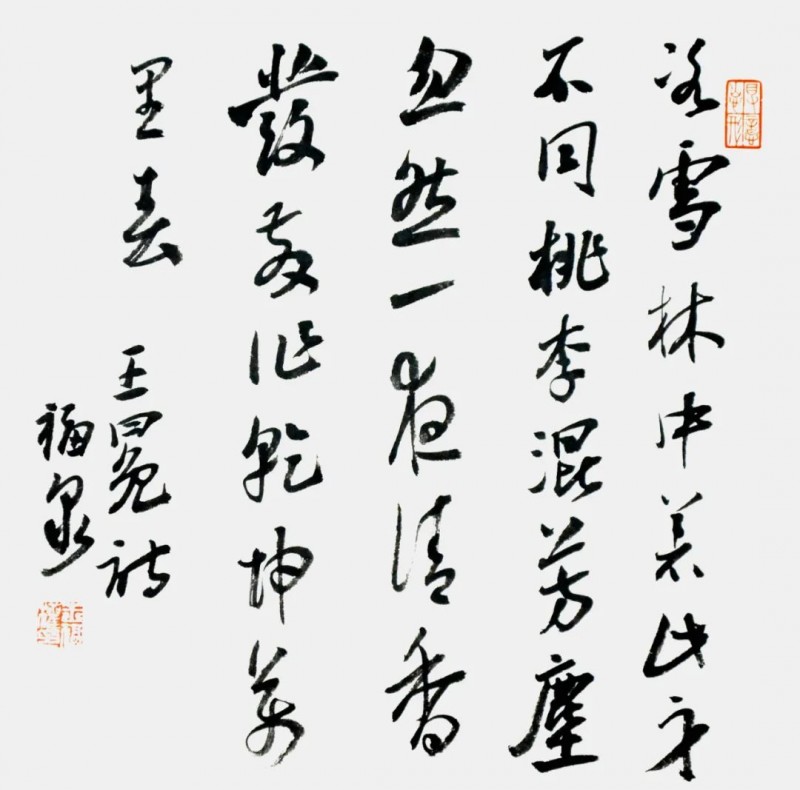 冰雪林中著此身
不同桃李混芳塵
忽然一夜清香
發散作乾坤萬
里春
王冕詩
福泉